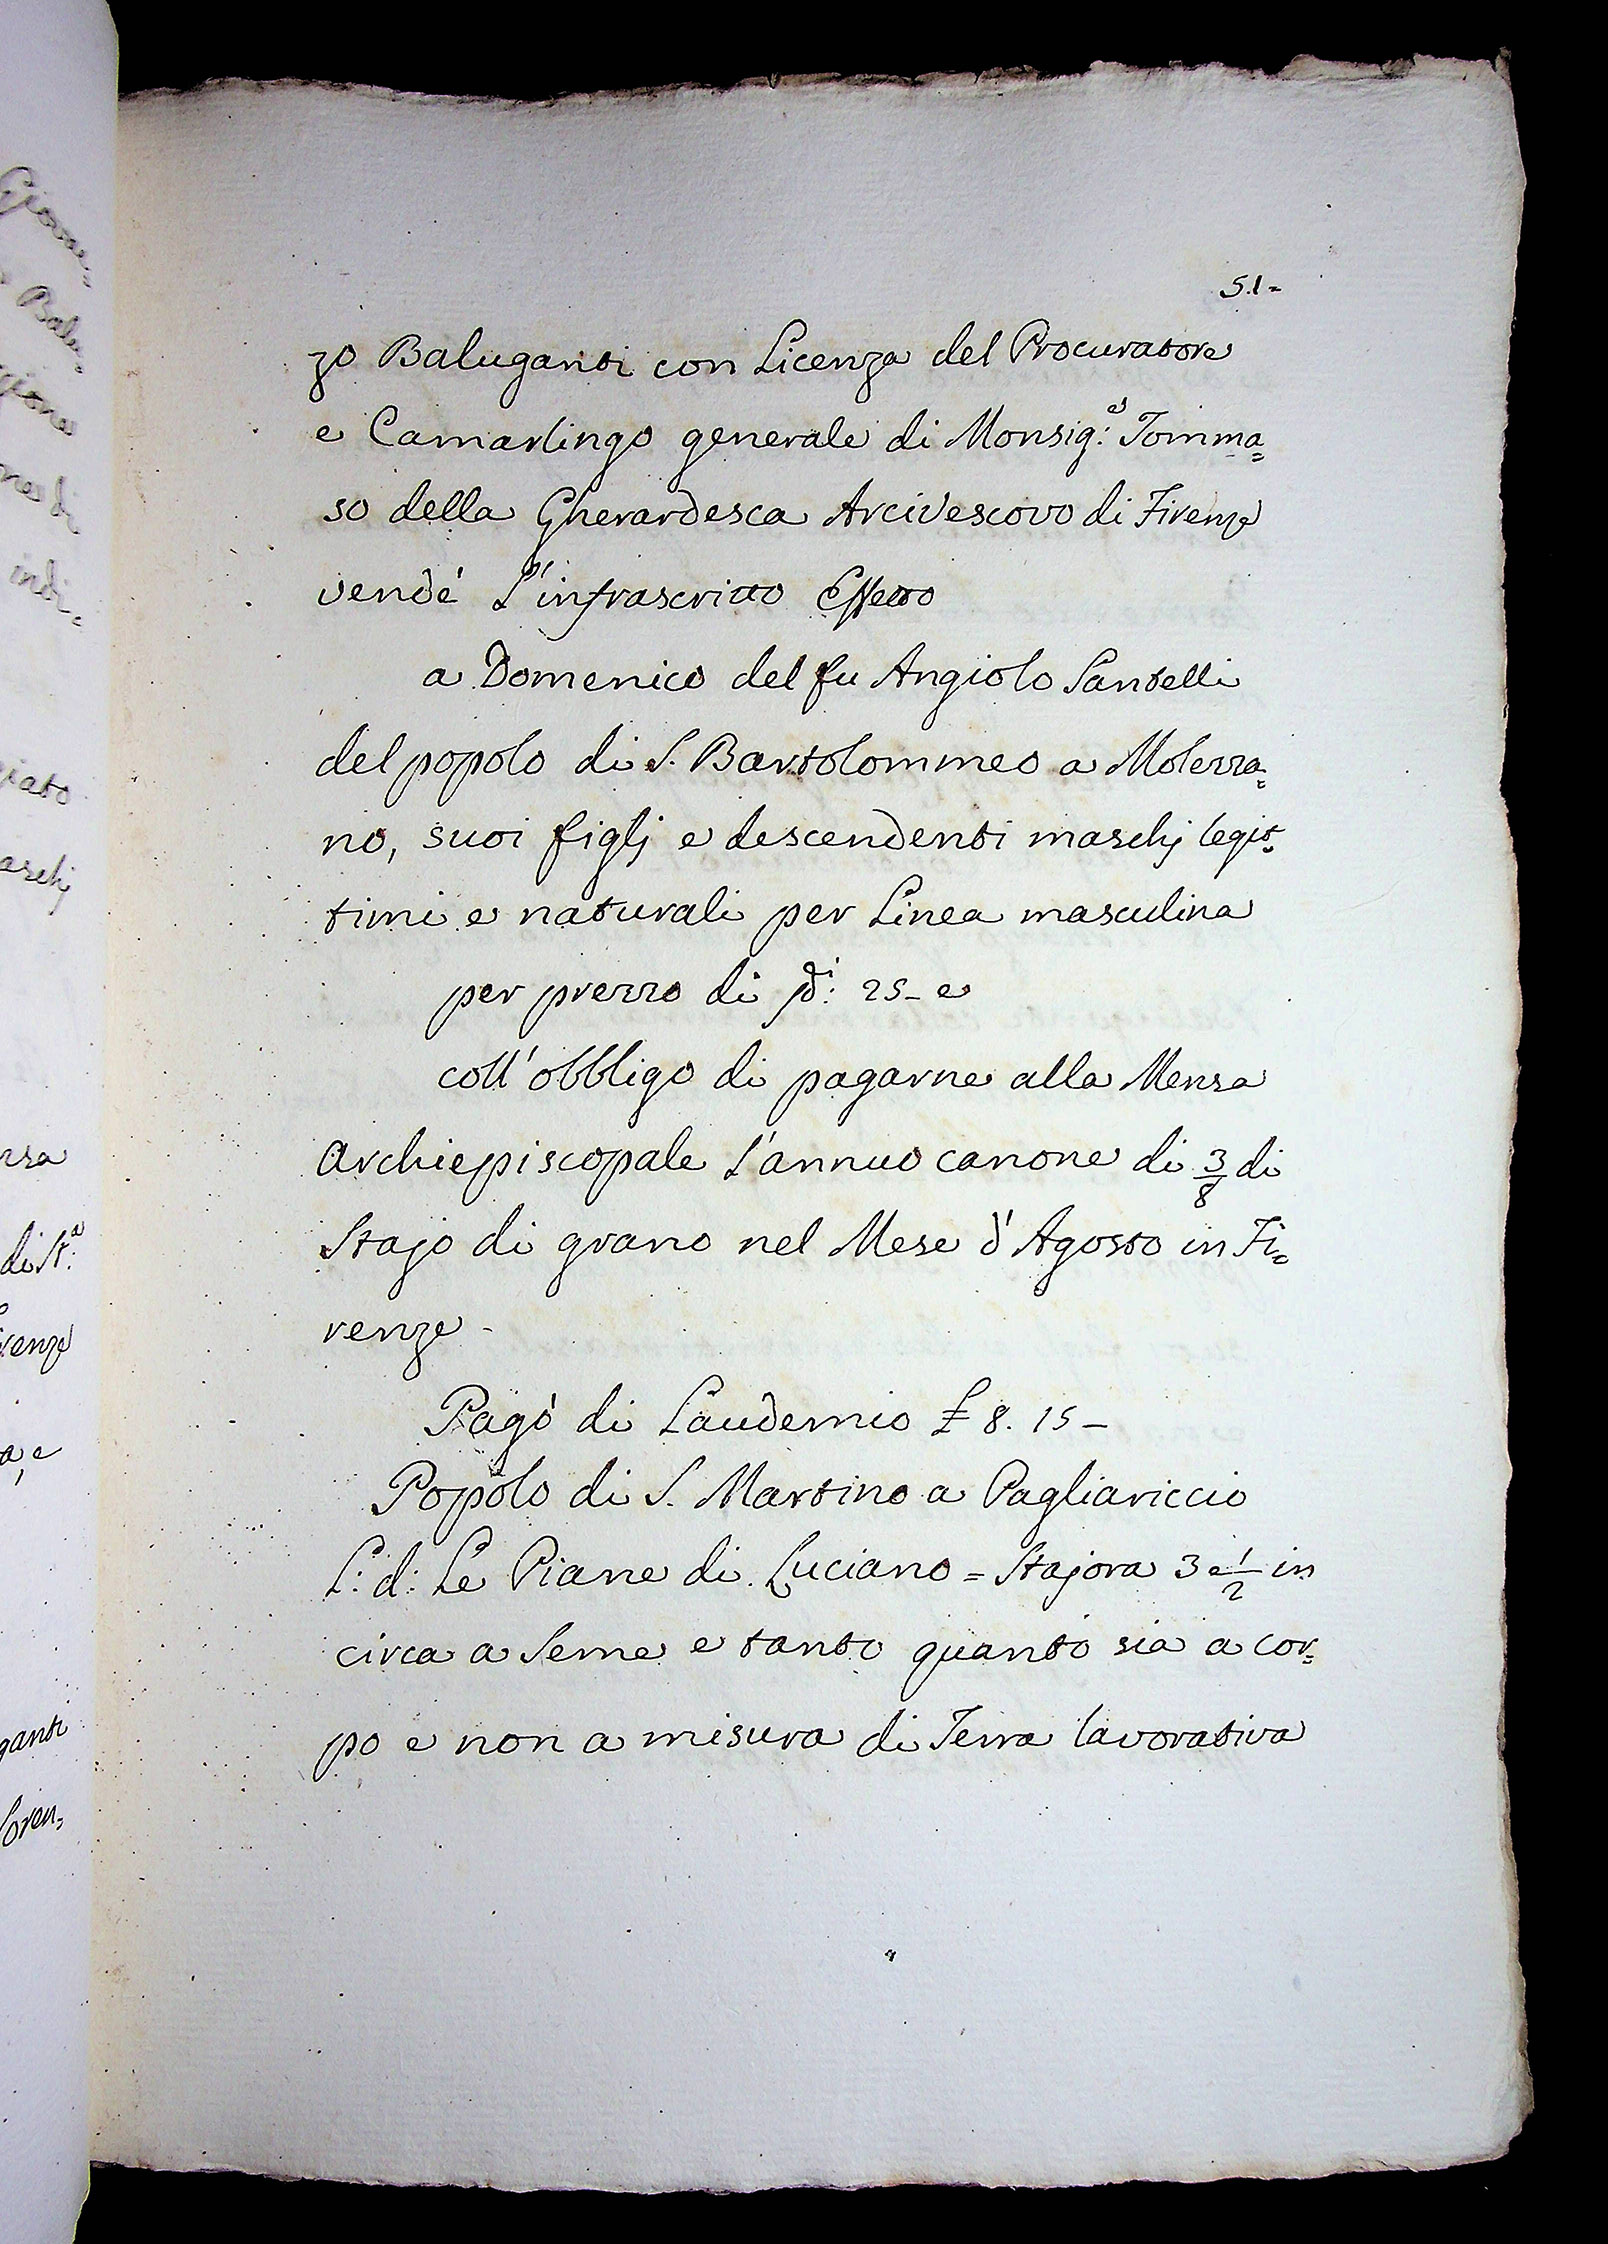 51=
zo Baluganti con Licenza del Procuratore
e Camarlingo generale di Monsig:e Tomma=
so della Gherardesca Arcivescovo di Firenze
vendé L'infrascritto Effetto
a Domenico del fu Angiolo Santelli
del popolo di S. Bartolommeo a Molezza=
no, suoi figlj e descendenti maschj legit=
timi e naturali per Linea masculina
per prezzo di 25- e
coll' obbligo di pagarne alla Mensa
Archiepiscopale l'annuo canone di 3/8 di
Stajo di grano nel Mese d'Agosto in Fi=
renze -
Pagò di Laudemio £ 8. 15 -
Popolo di S. Martino a Pagliariccio
L: d: Le Piane di Luciano = Stajora 3 e 1/2 in
circa a Seme e tanto quanto sia a cor=
po e non a misura di Terra lavorativa